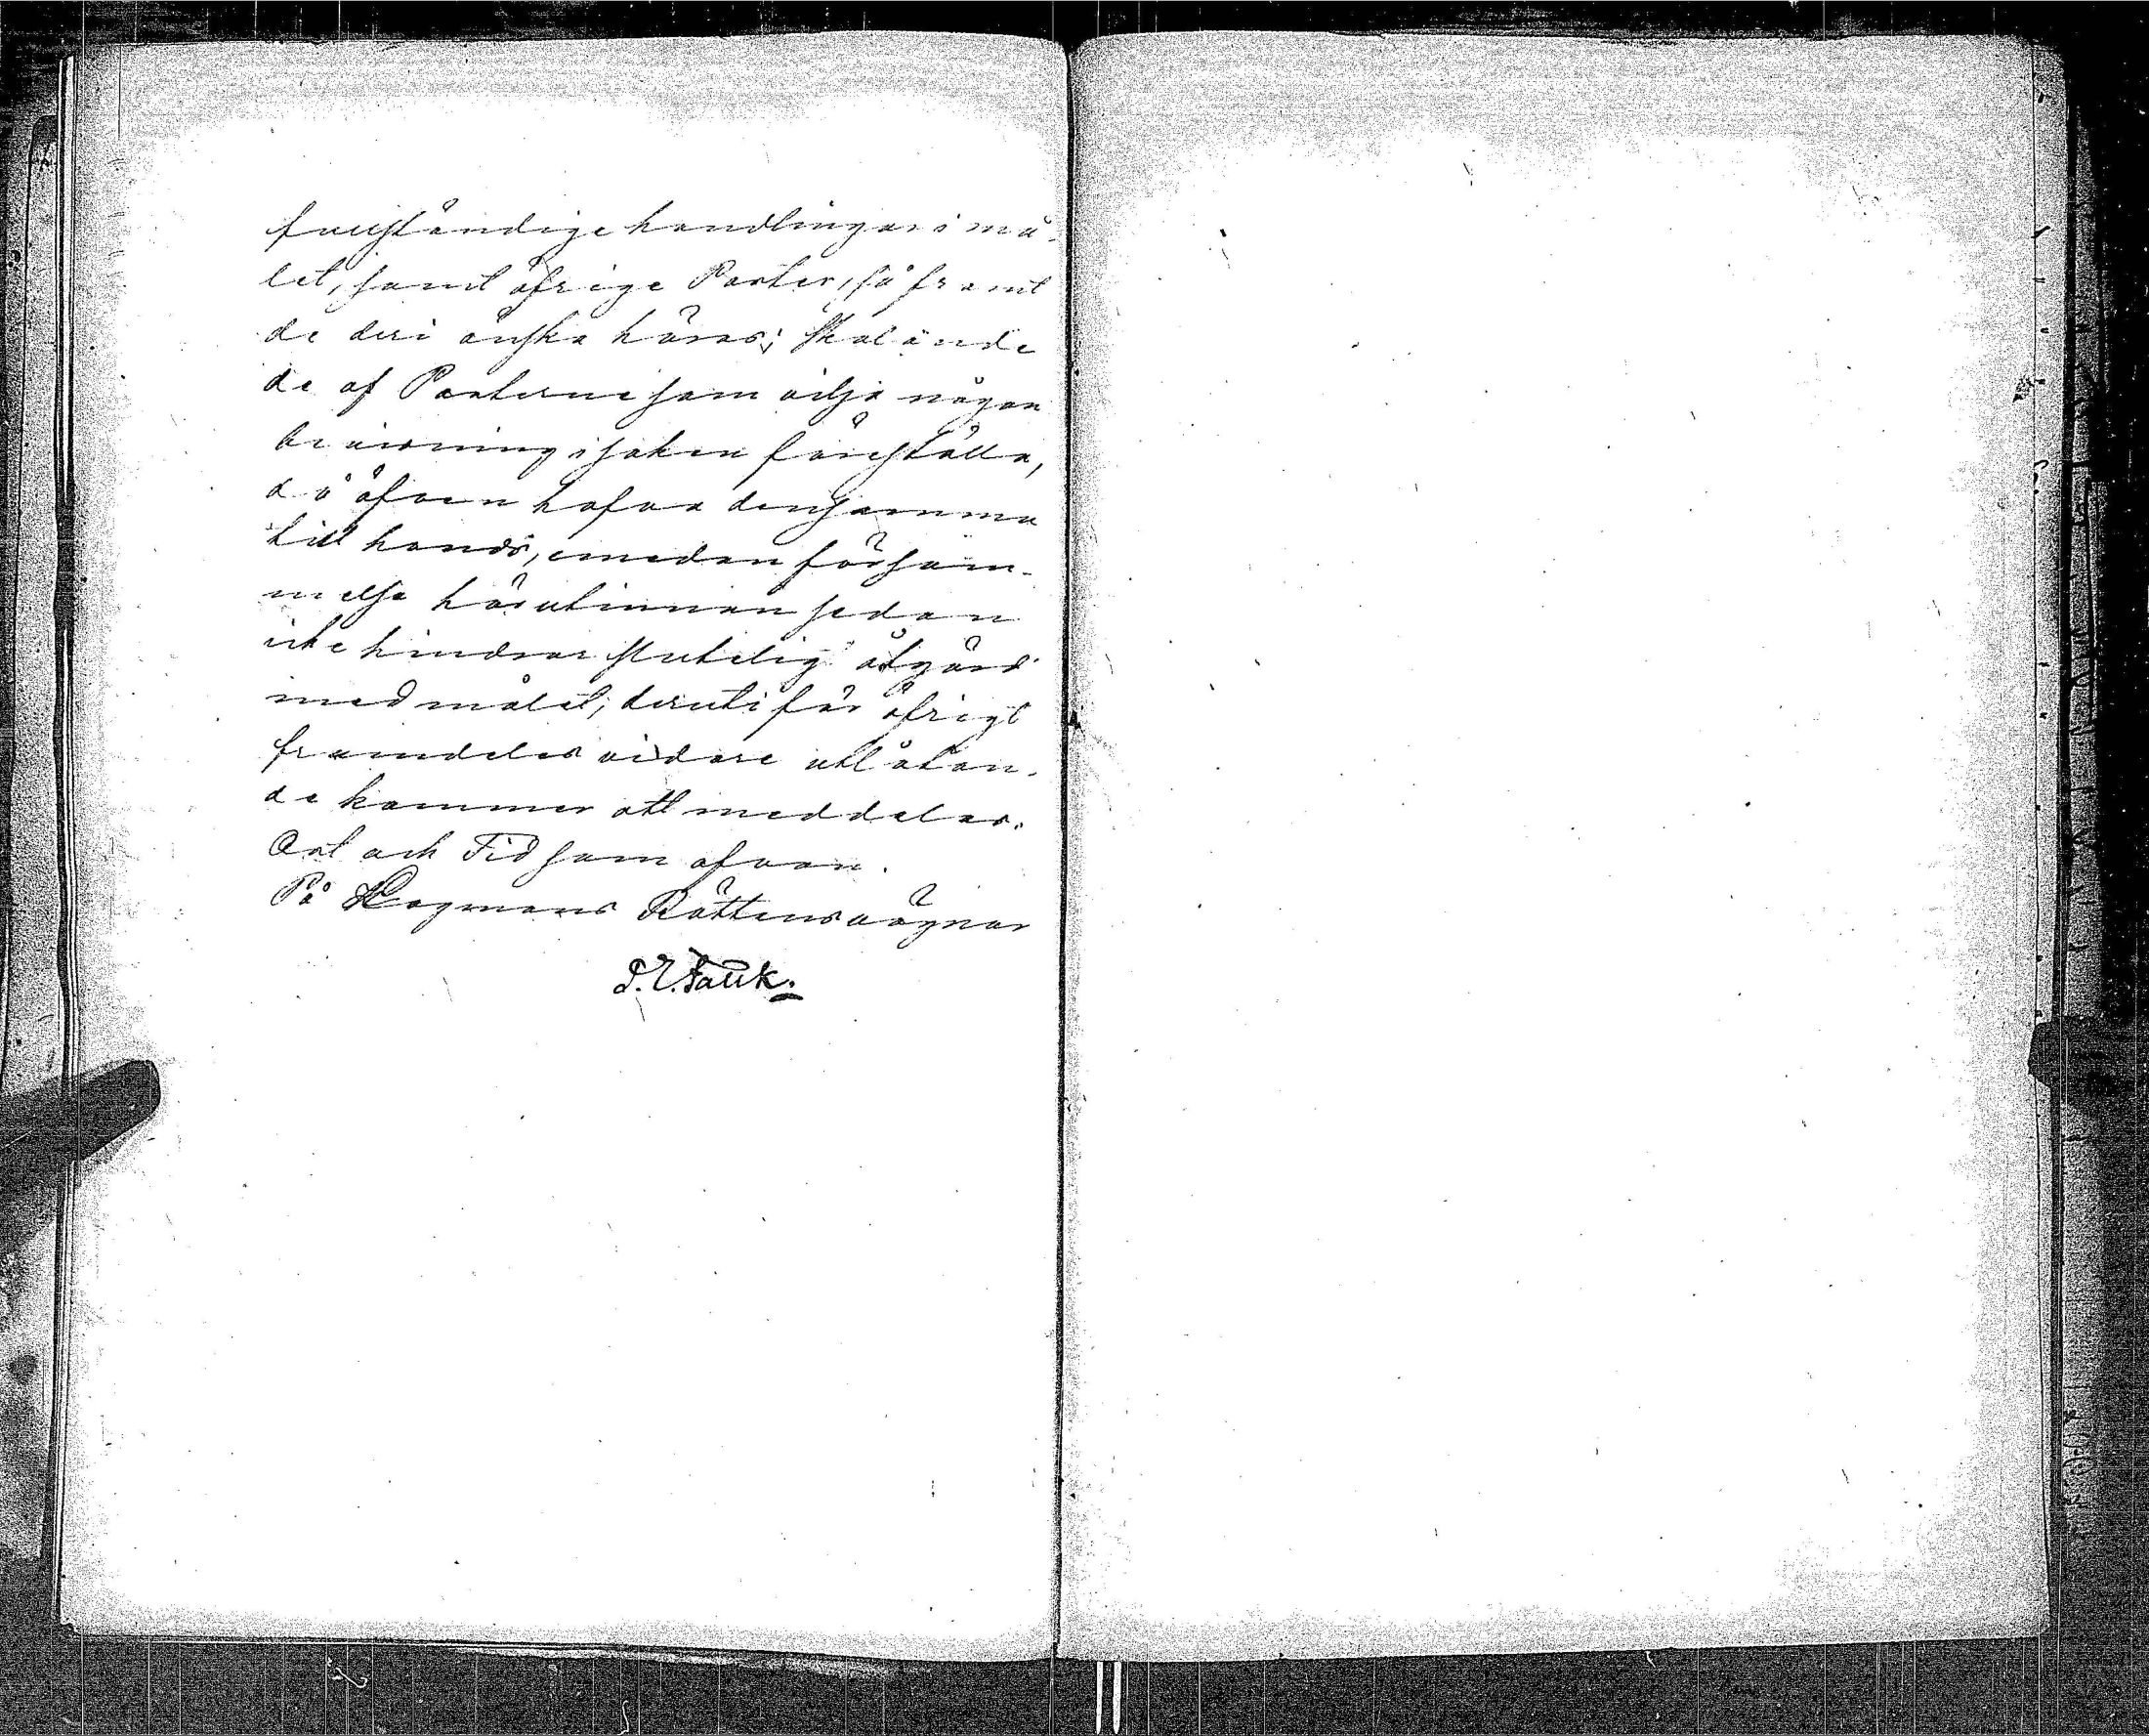 fullständige handlingar i må-
let, samt öfrige Parter, så framt
de deri önska höras; skolande
de af Parterne som vilja någon
bevisning i saken förestålla,
då äfven hafva densamma
till hands, emedan försum-
melse härutinnan sedan
icke hindrar slutelig åtgärd
med målet, deruti för öfrigt
framdeles vidare utlåtan-
de kommer att meddelas.
Ort och Tid som ofvan.
På Lagmans Rättens vägnar
Falck.